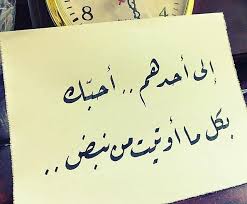 إلى أحدهم .. أحبّك
بكل ما أوتيت من نبض ..